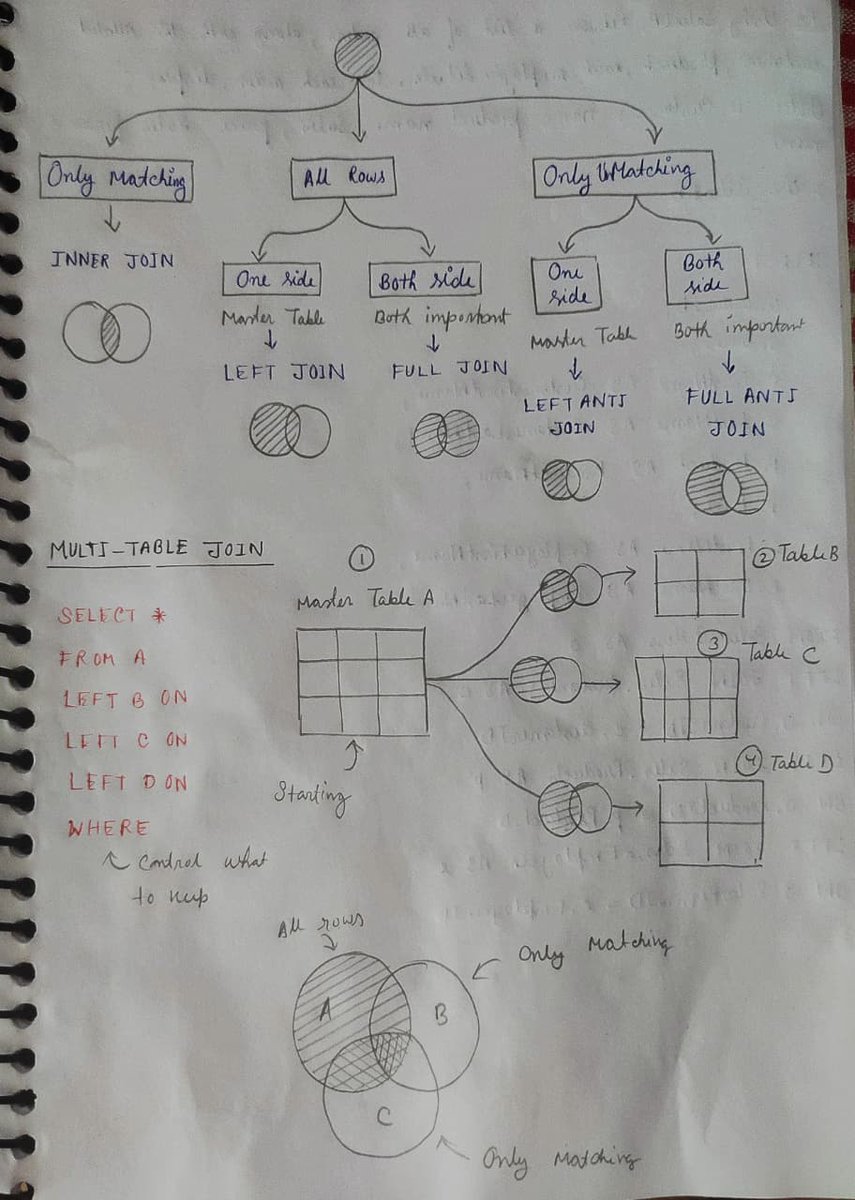 Only Matching
All Rows
Only UnMatching
INNER JOIN
One side
Both side
One
side
Both
side
Master Table
Both important
Master Table
Both important
LEFT JOIN
FULL JOIN
LEFT ANTI
JOIN
FULL ANTI
JOIN
MULTI-TABLE JOIN
SELECT *
FROM A
LEFT B ON
LEFT C ON
LEFT D ON
WHERE
control what
to keep
1
Master Table A
Starting
2 Table B
3 Table C
4 Table D
All rows
Only Matching
A
B
C
Only Matching